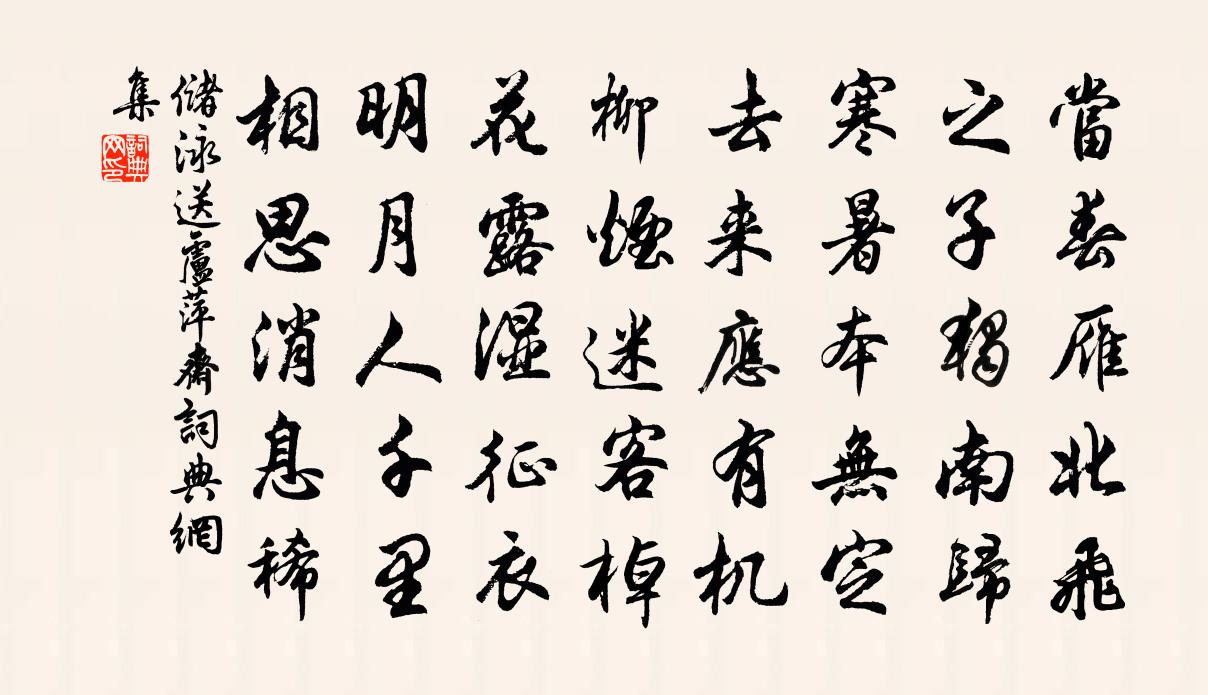 當春雁北飛
之子獨南歸
寒暑本無定
去来應有机
柳煙迷客棹
花露濕征衣
明月人千里
相思消息稀
儲泳送盧萍齋詞典網
集
詞典網印